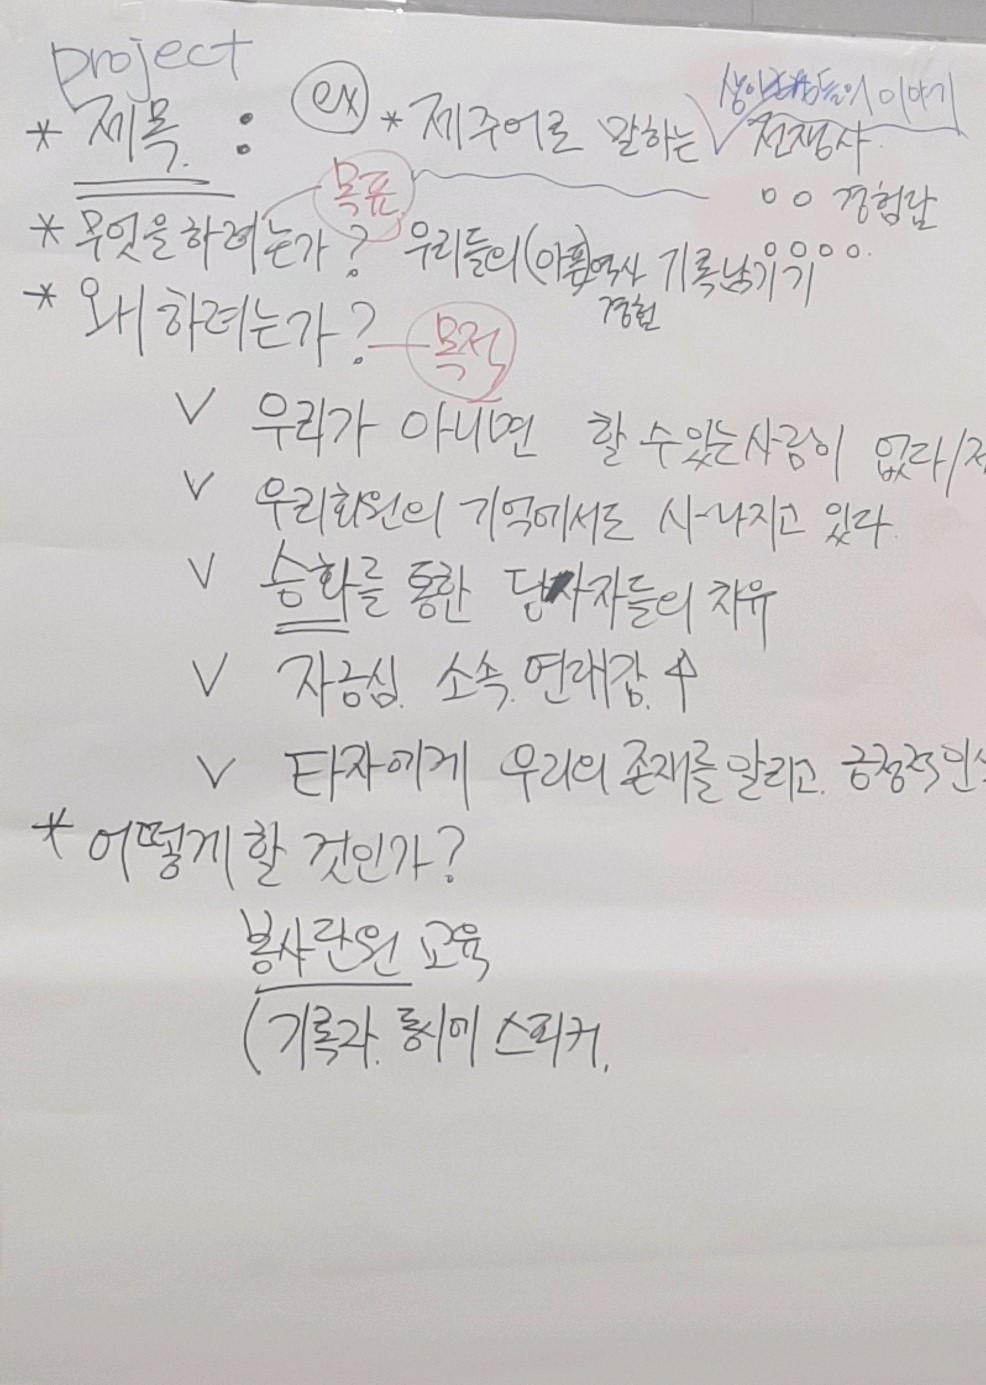 project
* 제목 : ex * 제주어로 말하는 √ 전쟁사
이야기
ㅇㅇ 경험담
목표
* 무엇을 하려는가? 우리들의 (아픈)역사 기록남기기
경험
* 왜 하려는가? 목적
V 우리가 아니면 할 수 있는 사람이 없다/
V 우리회원의 기억에서도 사라지고 있다.
V 승화를 통한 당사자들의 치유
V 자긍심. 소속. 연대감. ↑
V 타자에게 우리의 존재를 알리고. 긍정적 인식
* 어떻게 할 것인가?
봉사단원 교육
(기록자. 동시에 스피커.